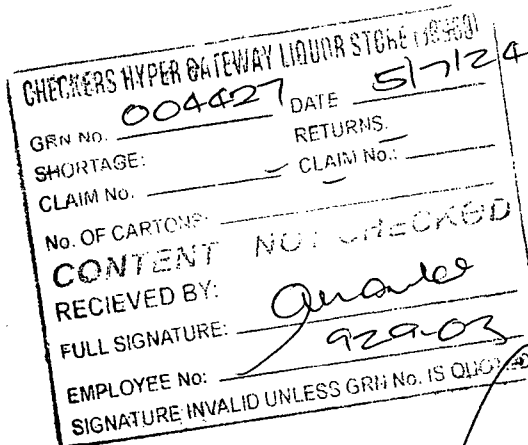 CHECKERS HYPER GATEWAY LIQUOR STORE
GRN No. 004427 DATE 5/7/24
SHORTAGE: RETURNS.
CLAIM No. CLAIM No.:
No. OF CARTONS:
CONTENT NOT CHECKED
RECIEVED BY:
FULL SIGNATURE:
EMPLOYEE No: 929-03
SIGNATURE INVALID UNLESS GRN No. IS QUOTED